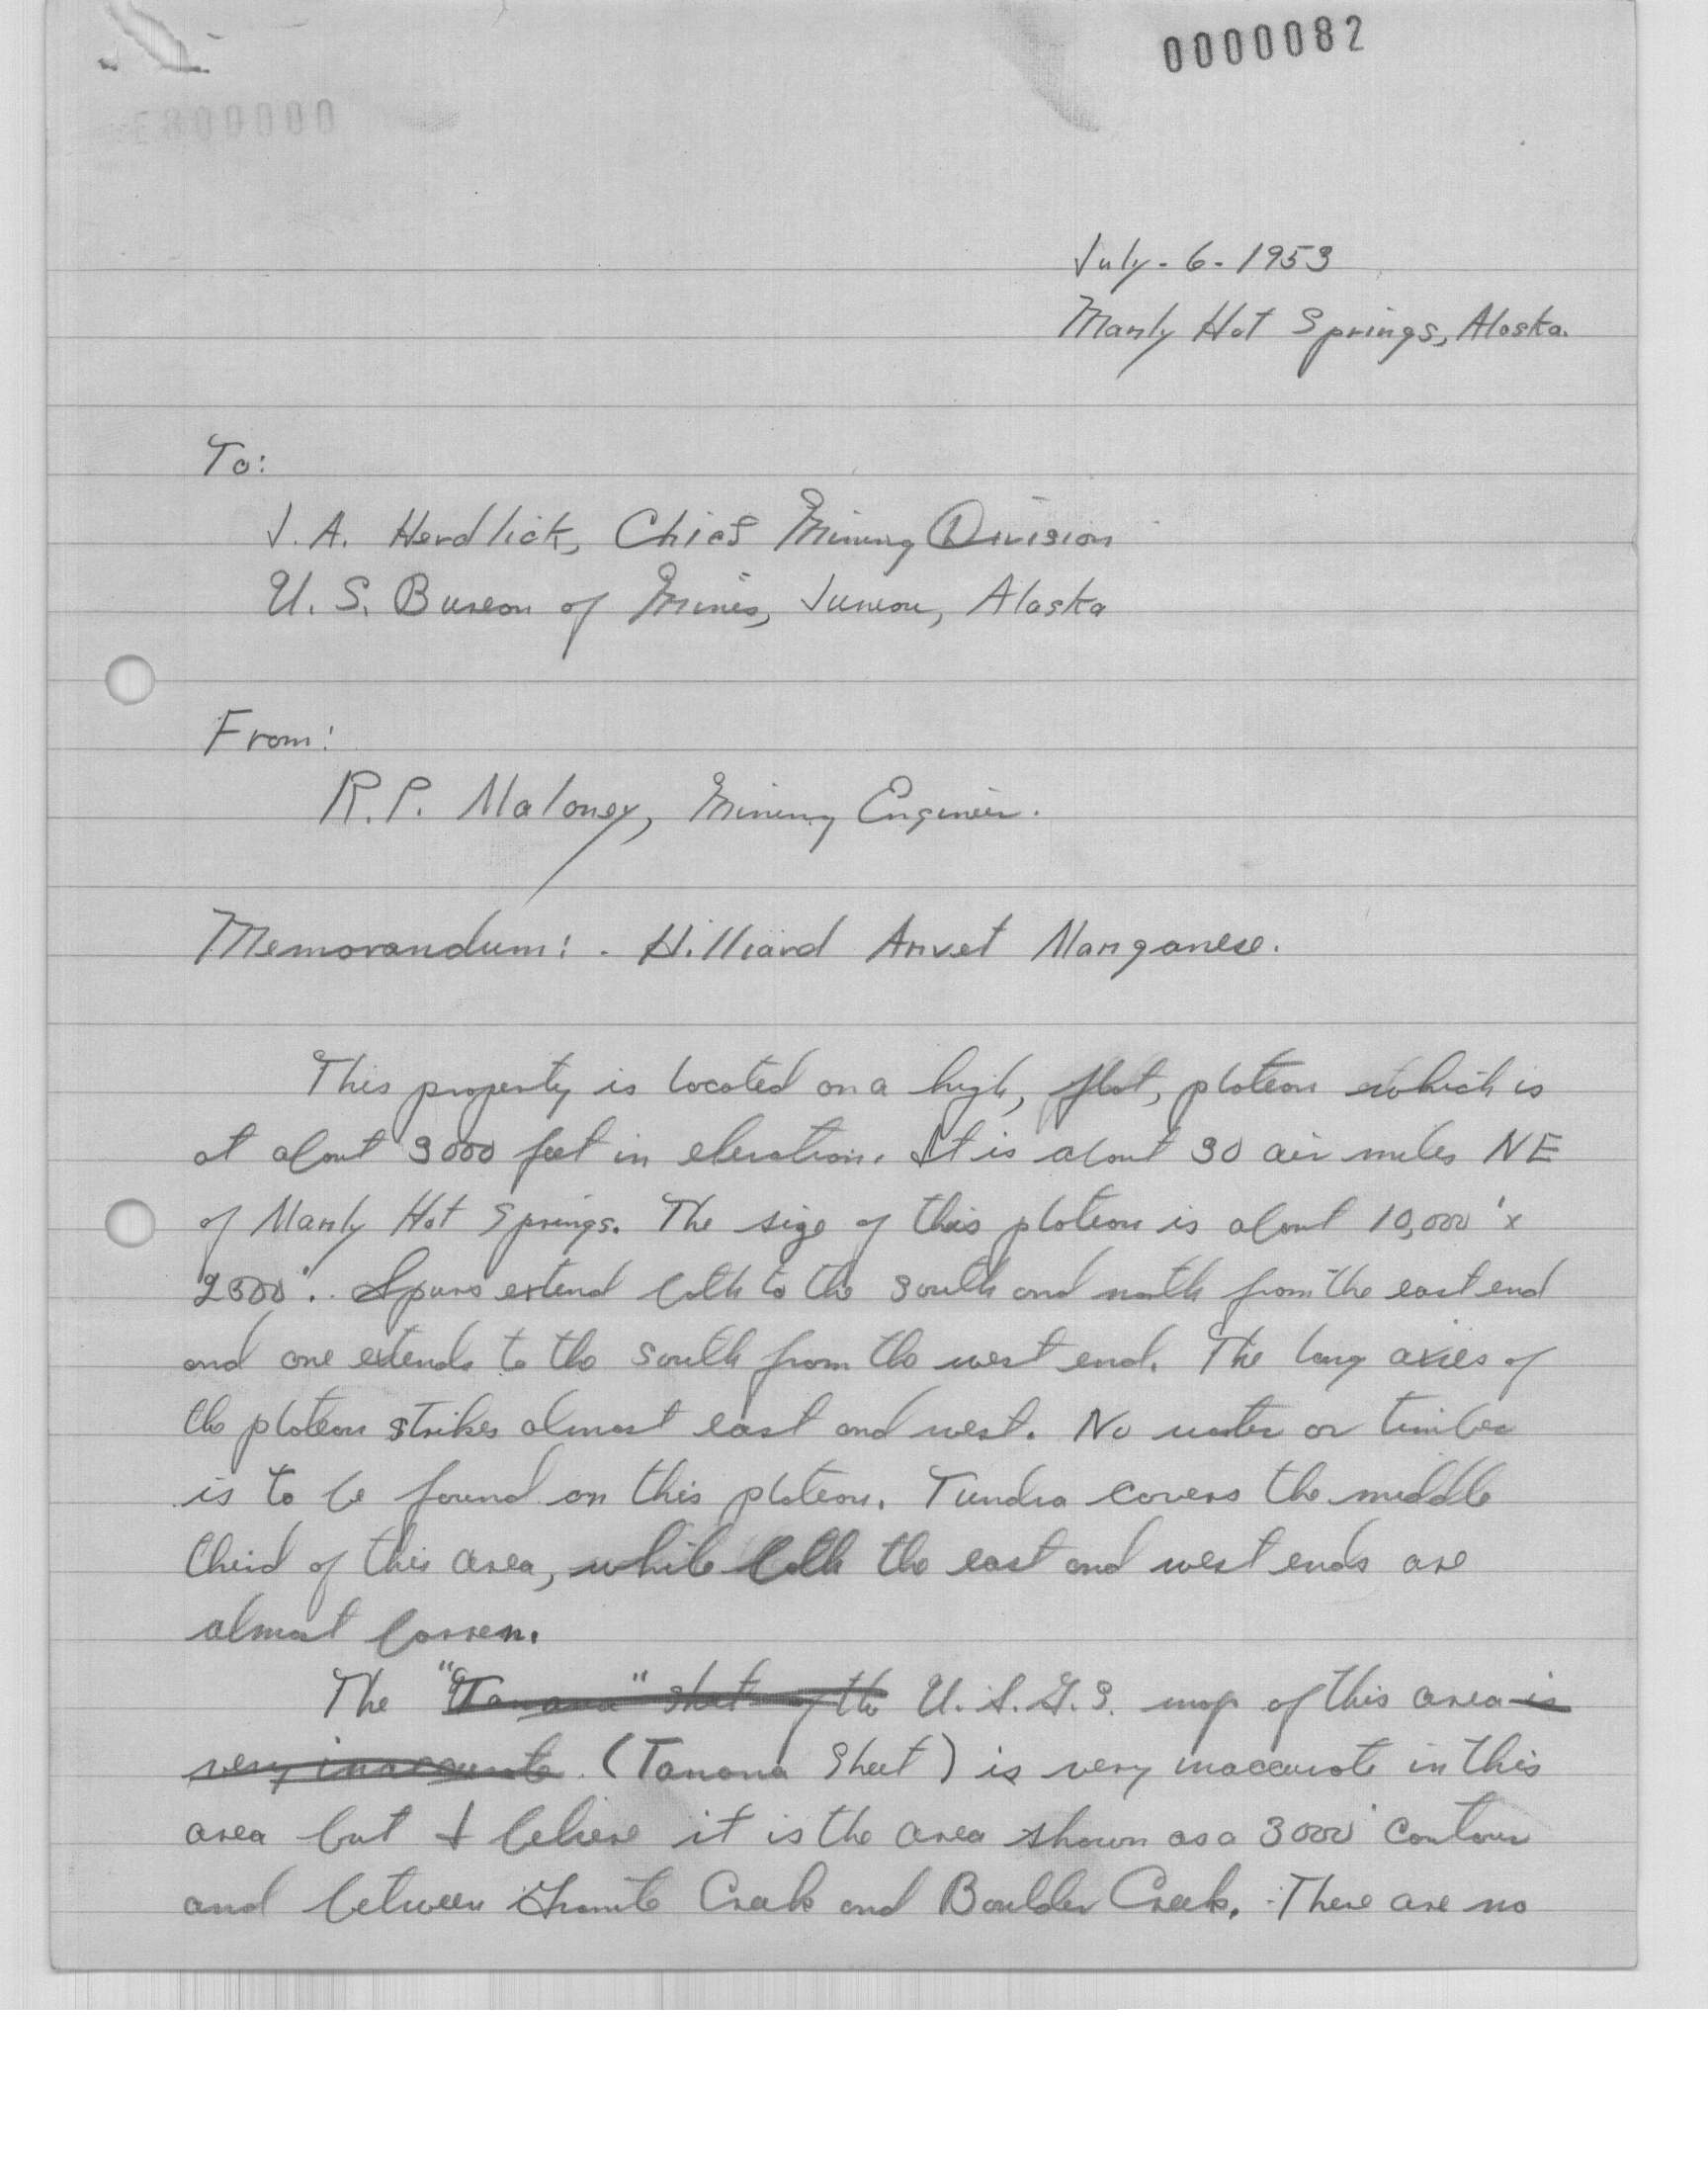 0000082
July - 6 - 1953
Manly Hot Springs, Alaska.
To:
J. A. Herdlick, Chief Mining Division
U. S. Bureau of Mines, Juneau, Alaska
From:
R. P. Maloney, Mining Engineer.
Memorandum: - Hilliard Anvet Manganese.
This property is located on a high, flat, plateau which is
at about 3000 feet in elevation. It is about 30 air miles NE
of Manly Hot Springs. The size of this plateau is about 10,000' x
2500'. Spurs extend both to the south and north from the east end
and one extends to the south from the west end. The long axies of
the plateau strikes almost east and west. No water or timber
is to be found on this plateau. Tundra covers the middle
third of this area, while both the east and west ends are
almost barren.
The "Tanana" sheet of the U. S. G. S. map of this area is
very inaccurate. (Tanana Sheet) is very inaccurate in this
area but I believe it is the area shown as a 3000' contour
and between Granite Creek and Boulder Creek. There are no